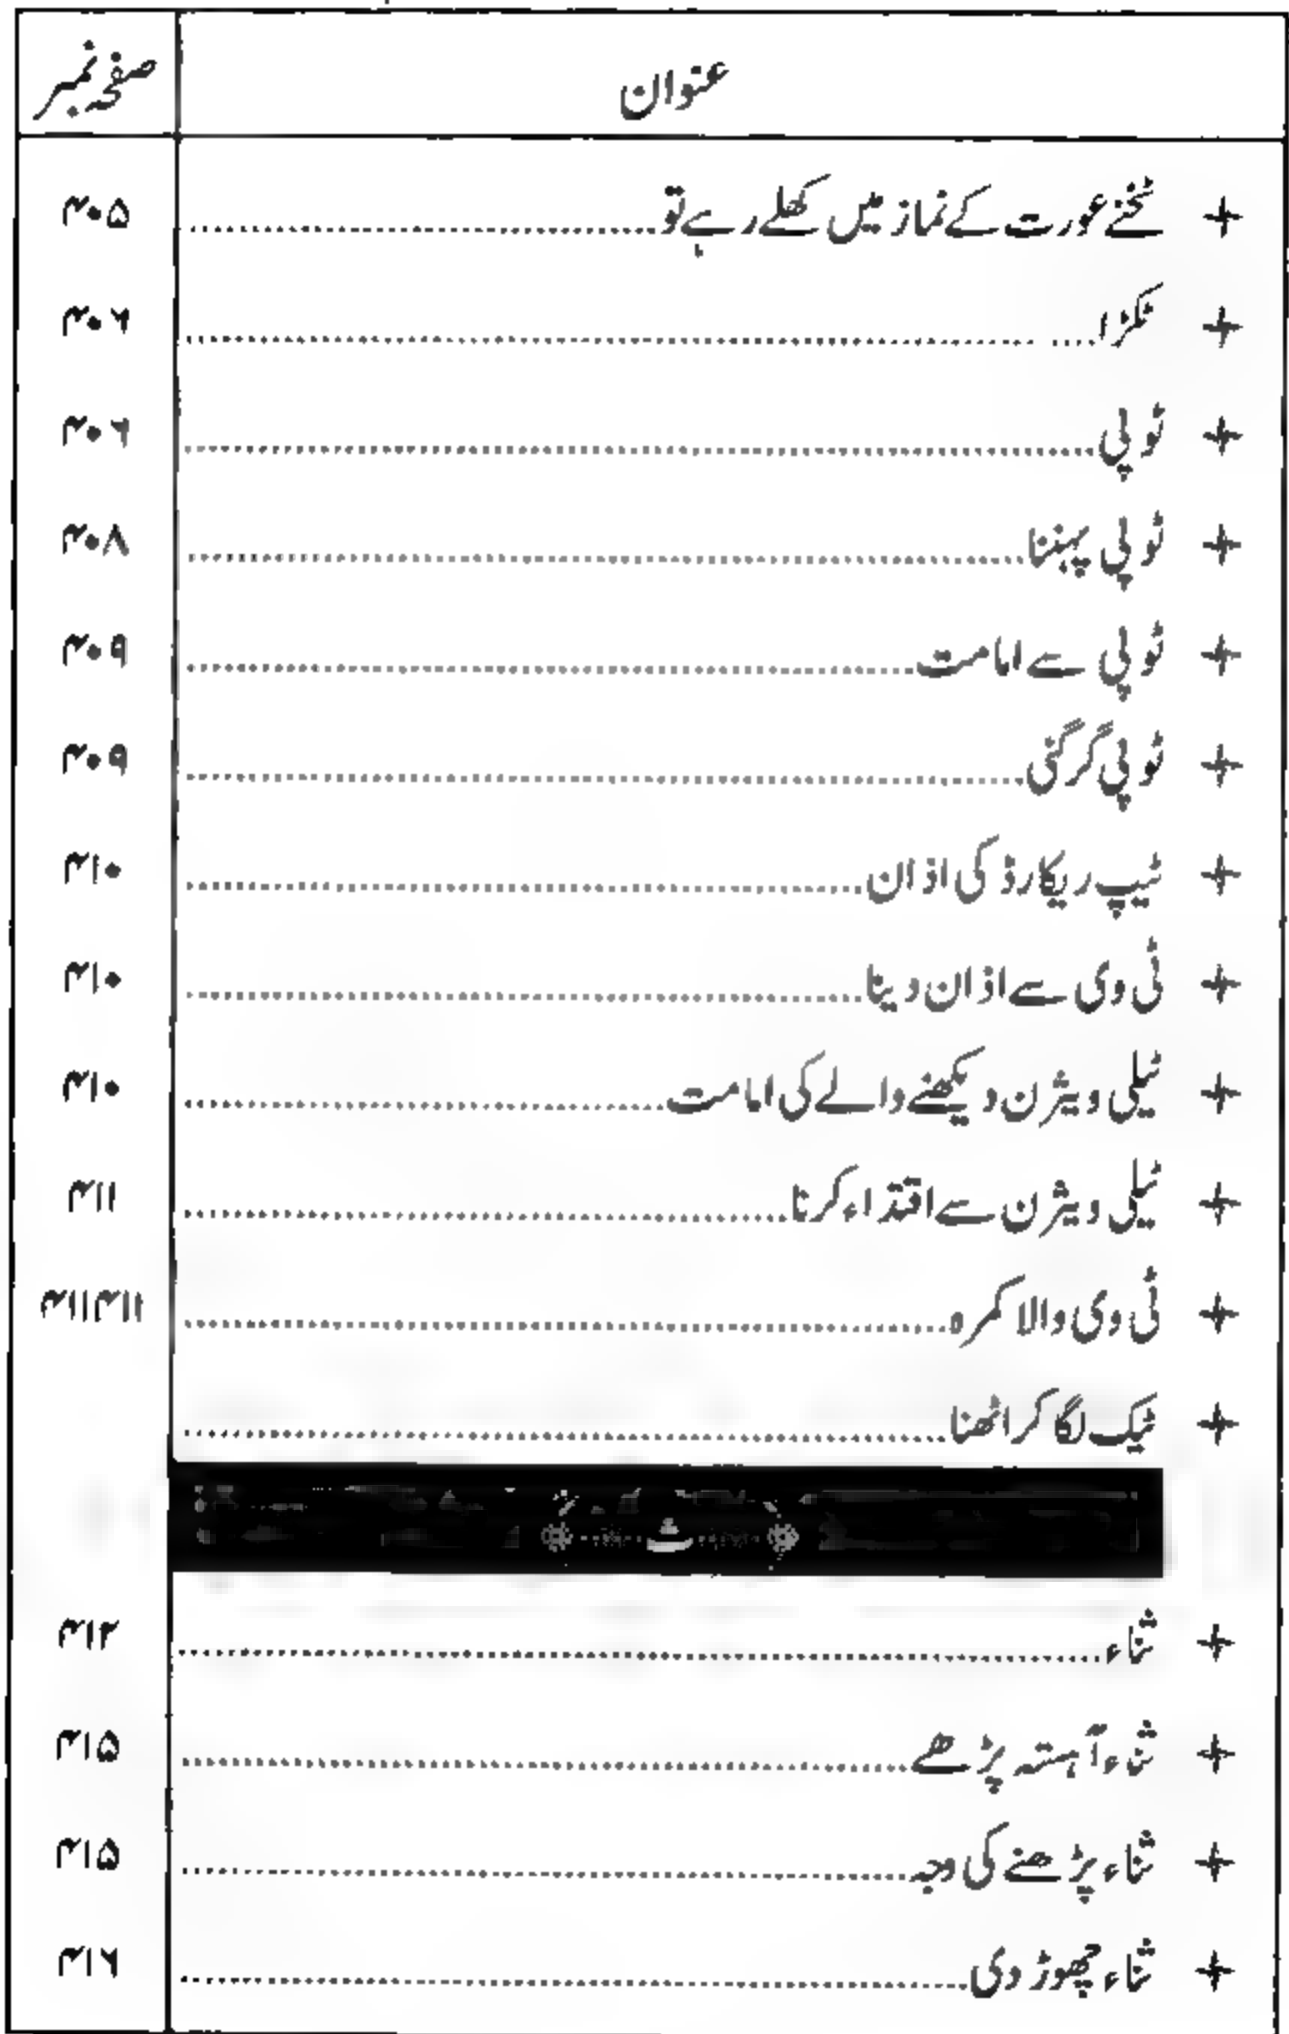 عنوان صفحہ نمبر
+ ٹخنے عورت کے نماز میں کھلے رہے تو ۴۰۵
+ ٹکڑا ۴۰۶
+ ٹوپی ۴۰۶
+ ٹوپی پہننا ۴۰۸
+ ٹوپی سے امامت ۴۰۹
+ ٹوپی گرگئی ۴۰۹
+ ٹیپ ریکارڈ کی اذان ۴۱۰
+ ٹی وی سے اذان دینا ۴۱۰
+ ٹیلی ویثرن دیکھنے والے کی امامت ۴۱۰
+ ٹیلی ویثرن سے اقتداء کرنا ۴۱۱
+ ٹی وی والا کمرہ ۴۱۱۴۱۱
+ ٹیک لگا کر اٹھنا
ث
+ ثناء ۴۱۲
+ ثناء آہستہ پڑھے ۴۱۵
+ ثناء پڑھنے کی وجہ ۴۱۵
+ ثناء چھوڑ دی ۴۱۶